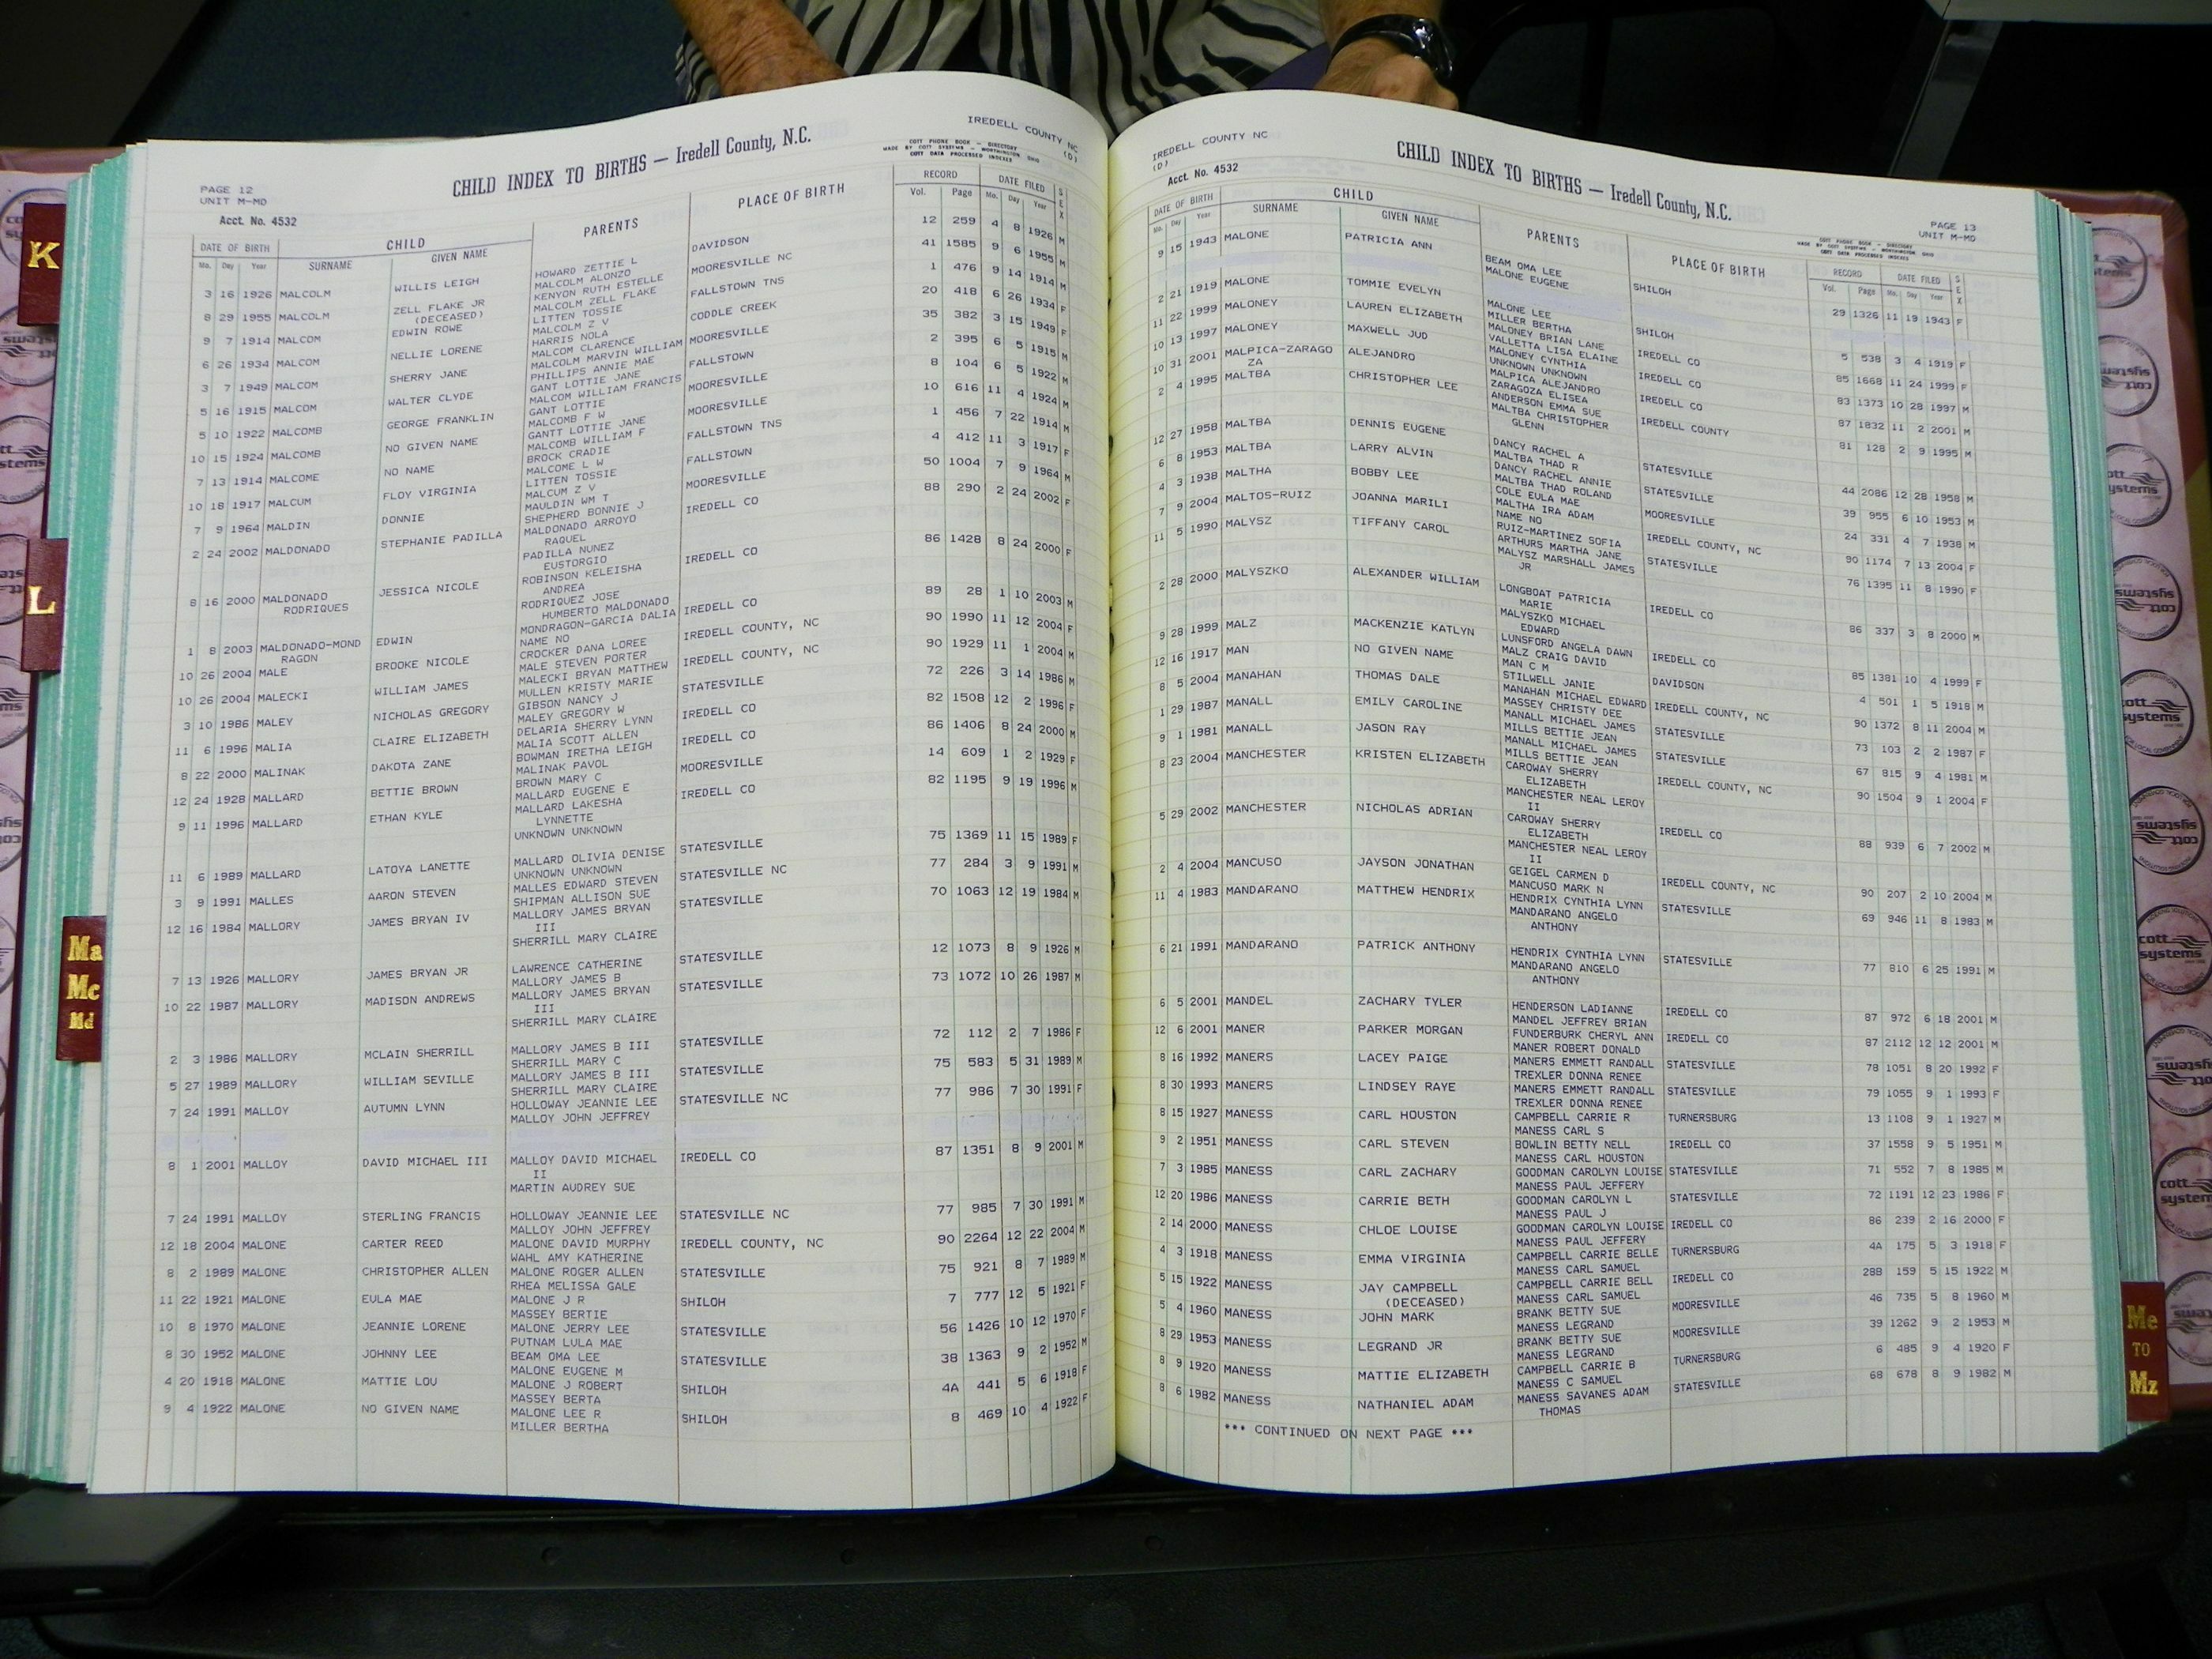 K
L
Ma
Mc
Md
Me
TO
Mz
PAGE 12
UNIT M-MD
Acct. No. 4532
CHILD INDEX TO BIRTHS — Iredell County, N.C.
IREDELL COUNTY NC
(D)
COTT PHONE BOOK - DIRECTORY
MADE BY COTT SYSTEMS - WORTHINGTON OHIO
COTT DATA PROCESSED INDEXES
DATE OF BIRTH CHILD PARENTS PLACE OF BIRTH RECORD DATE FILED SEX
Mo. Day Year SURNAME GIVEN NAME Vol. Page Mo. Day Year
3 16 1926 MALCOLM WILLIS LEIGH HOWARD ZETTIE L DAVIDSON 12 259 4 8 1926 M
MALCOLM ALONZO
8 29 1955 MALCOLM ZELL FLAKE JR KENYON RUTH ESTELLE MOORESVILLE NC 41 1585 9 6 1955 M
(DECEASED) MALCOLM ZELL FLAKE
9 7 1914 MALCOM EDWIN ROWE LITTEN TOSSIE FALLSTOWN TNS 1 476 9 14 1914 M
MALCOLM Z V
6 26 1934 MALCOM NELLIE LORENE HARRIS NOLA CODDLE CREEK 20 418 6 26 1934 F
MALCOM CLARENCE
3 7 1949 MALCOM SHERRY JANE MALCOLM MARVIN WILLIAM MOORESVILLE 35 382 3 15 1949 F
PHILLIPS ANNIE MAE
5 16 1915 MALCOM WALTER CLYDE GANT LOTTIE JANE FALLSTOWN 2 395 6 5 1915 M
MALCOM WILLIAM FRANCIS
5 10 1922 MALCOMB GEORGE FRANKLIN GANT LOTTIE MOORESVILLE 8 104 6 5 1922 M
MALCOMB F W
10 15 1924 MALCOMB NO GIVEN NAME GANTT LOTTIE JANE MOORESVILLE 10 616 11 4 1924 M
MALCOMB WILLIAM F
7 13 1914 MALCOME NO NAME BROCK CRADIE FALLSTOWN TNS 1 456 7 22 1914 M
MALCOME L W
10 18 1917 MALCUM FLOY VIRGINIA LITTEN TOSSIE FALLSTOWN 4 412 11 3 1917 F
MALCUM Z V
7 9 1964 MALDIN DONNIE MAULDIN WM T MOORESVILLE 50 1004 7 9 1964 M
SHEPHERD BONNIE J
2 24 2002 MALDONADO STEPHANIE PADILLA MALDONADO ARROYO IREDELL CO 88 290 2 24 2002 F
RAQUEL
PADILLA NUNEZ
EUSTORGIO
8 16 2000 MALDONADO JESSICA NICOLE ROBINSON KELEISHA IREDELL CO 86 1428 8 24 2000 F
RODRIQUES ANDREA
RODRIQUEZ JOSE
HUMBERTO MALDONADO
1 8 2003 MALDONADO-MOND EDWIN MONDRAGON-GARCIA DALIA IREDELL CO 89 28 1 10 2003 M
RAGON NAME NO
10 26 2004 MALE BROOKE NICOLE CROCKER DANA LOREE IREDELL COUNTY, NC 90 1990 11 12 2004 F
MALE STEVEN PORTER
10 26 2004 MALECKI WILLIAM JAMES MALECKI BRYAN MATTHEW IREDELL COUNTY, NC 90 1929 11 1 2004 M
MULLEN KRISTY MARIE
3 10 1986 MALEY NICHOLAS GREGORY GIBSON NANCY J STATESVILLE 72 226 3 14 1986 M
MALEY GREGORY W
11 6 1996 MALIA CLAIRE ELIZABETH DELARIA SHERRY LYNN IREDELL CO 82 1508 12 2 1996 F
MALIA SCOTT ALLEN
8 22 2000 MALINAK DAKOTA ZANE BOWMAN IRETHA LEIGH IREDELL CO 86 1406 8 24 2000 M
MALINAK PAVOL
12 24 1928 MALLARD BETTIE BROWN BROWN MARY C MOORESVILLE 14 609 1 2 1929 F
MALLARD EUGENE E
9 11 1996 MALLARD ETHAN KYLE MALLARD LAKESHA IREDELL CO 82 1195 9 19 1996 M
LYNNETTE
UNKNOWN UNKNOWN
11 6 1989 MALLARD LATOYA LANETTE MALLARD OLIVIA DENISE STATESVILLE 75 1369 11 15 1989 F
UNKNOWN UNKNOWN
3 9 1991 MALLES AARON STEVEN MALLES EDWARD STEVEN STATESVILLE NC 77 284 3 9 1991 M
SHIPMAN ALLISON SUE
12 16 1984 MALLORY JAMES BRYAN IV MALLORY JAMES BRYAN STATESVILLE 70 1063 12 19 1984 M
III
SHERRILL MARY CLAIRE
7 13 1926 MALLORY JAMES BRYAN JR LAWRENCE CATHERINE STATESVILLE 12 1073 8 9 1926 M
MALLORY JAMES B
10 22 1987 MALLORY MADISON ANDREWS MALLORY JAMES BRYAN STATESVILLE 73 1072 10 26 1987 M
III
SHERRILL MARY CLAIRE
2 3 1986 MALLORY MCLAIN SHERRILL MALLORY JAMES B III STATESVILLE 72 112 2 7 1986 F
SHERRILL MARY C
5 27 1989 MALLORY WILLIAM SEVILLE MALLORY JAMES B III STATESVILLE 75 583 5 31 1989 M
SHERRILL MARY CLAIRE
7 24 1991 MALLOY AUTUMN LYNN HOLLOWAY JEANNIE LEE STATESVILLE NC 77 986 7 30 1991 F
MALLOY JOHN JEFFREY
8 1 2001 MALLOY DAVID MICHAEL III MALLOY DAVID MICHAEL IREDELL CO 87 1351 8 9 2001 M
II
MARTIN AUDREY SUE
7 24 1991 MALLOY STERLING FRANCIS HOLLOWAY JEANNIE LEE STATESVILLE NC 77 985 7 30 1991 M
MALLOY JOHN JEFFREY
12 18 2004 MALONE CARTER REED MALONE DAVID MURPHY IREDELL COUNTY, NC 90 2264 12 22 2004 M
WAHL AMY KATHERINE
8 2 1989 MALONE CHRISTOPHER ALLEN MALONE ROGER ALLEN STATESVILLE 75 921 8 7 1989 M
RHEA MELISSA GALE
11 22 1921 MALONE EULA MAE MALONE J R SHILOH 7 777 12 5 1921 F
MASSEY BERTIE
10 8 1970 MALONE JEANNIE LORENE MALONE JERRY LEE STATESVILLE 56 1426 10 12 1970 F
PUTNAM LULA MAE
8 30 1952 MALONE JOHNNY LEE BEAM OMA LEE STATESVILLE 38 1363 9 2 1952 M
MALONE EUGENE M
4 20 1918 MALONE MATTIE LOU MALONE J ROBERT SHILOH 4A 441 5 6 1918 F
MASSEY BERTA
9 4 1922 MALONE NO GIVEN NAME MALONE LEE R SHILOH 8 469 10 4 1922 F
MILLER BERTHA
IREDELL COUNTY NC
(D)
Acct. No. 4532
CHILD INDEX TO BIRTHS — Iredell County, N.C.
PAGE 13
UNIT M-MD
COTT PHONE BOOK - DIRECTORY
MADE BY COTT SYSTEMS - WORTHINGTON OHIO
COTT DATA PROCESSED INDEXES
DATE OF BIRTH CHILD PARENTS PLACE OF BIRTH RECORD DATE FILED SEX
Mo. Day Year SURNAME GIVEN NAME Vol. Page Mo. Day Year
9 15 1943 MALONE PATRICIA ANN BEAM OMA LEE SHILOH 29 1326 11 19 1943 F
MALONE EUGENE
2 21 1919 MALONE TOMMIE EVELYN MALONE LEE SHILOH 5 538 3 4 1919 F
MILLER BERTHA
11 22 1999 MALONEY LAUREN ELIZABETH MALONEY BRIAN LANE IREDELL CO 85 1668 11 24 1999 F
VALLETTA LISA ELAINE
10 13 1997 MALONEY MAXWELL JUD MALONEY CYNTHIA IREDELL CO 83 1373 10 28 1997 M
UNKNOWN UNKNOWN
10 31 2001 MALPICA-ZARAGO ALEJANDRO MALPICA ALEJANDRO IREDELL CO 87 1832 11 2 2001 M
ZA ZARAGOZA ELISEA
2 4 1995 MALTBA CHRISTOPHER LEE ANDERSON EMMA SUE IREDELL COUNTY 81 128 2 9 1995 M
MALTBA CHRISTOPHER
GLENN
12 27 1958 MALTBA DENNIS EUGENE DANCY RACHEL A STATESVILLE 44 2086 12 28 1958 M
MALTBA THAD R
6 8 1953 MALTBA LARRY ALVIN DANCY RACHEL ANNIE STATESVILLE 39 955 6 10 1953 M
MALTBA THAD ROLAND
4 3 1938 MALTHA BOBBY LEE COLE EULA MAE MOORESVILLE 24 331 4 7 1938 M
MALTHA IRA ADAM
7 9 2004 MALTOS-RUIZ JOANNA MARILI NAME NO IREDELL COUNTY, NC 90 1174 7 13 2004 F
RUIZ-MARTINEZ SOFIA
11 5 1990 MALYSZ TIFFANY CAROL ARTHURS MARTHA JANE STATESVILLE 76 1395 11 8 1990 F
MALYSZ MARSHALL JAMES
JR
2 28 2000 MALYSZKO ALEXANDER WILLIAM LONGBOAT PATRICIA IREDELL CO 86 337 3 8 2000 M
MARIE
MALYSZKO MICHAEL
EDWARD
9 28 1999 MALZ MACKENZIE KATLYN LUNSFORD ANGELA DAWN IREDELL CO 85 1381 10 4 1999 F
MALZ CRAIG DAVID
12 16 1917 MAN NO GIVEN NAME MAN C M DAVIDSON 4 501 1 5 1918 M
STILWELL JANIE
8 5 2004 MANAHAN THOMAS DALE MANAHAN MICHAEL EDWARD IREDELL COUNTY, NC 90 1372 8 11 2004 M
MASSEY CHRISTY DEE
1 29 1987 MANALL EMILY CAROLINE MANALL MICHAEL JAMES STATESVILLE 73 103 2 2 1987 F
MILLS BETTIE JEAN
9 1 1981 MANALL JASON RAY MANALL MICHAEL JAMES STATESVILLE 67 815 9 4 1981 M
MILLS BETTIE JEAN
8 23 2004 MANCHESTER KRISTEN ELIZABETH CAROWAY SHERRY IREDELL COUNTY, NC 90 1504 9 1 2004 F
ELIZABETH
MANCHESTER NEAL LEROY
II
5 29 2002 MANCHESTER NICHOLAS ADRIAN CAROWAY SHERRY IREDELL CO 88 939 6 7 2002 M
ELIZABETH
MANCHESTER NEAL LEROY
II
2 4 2004 MANCUSO JAYSON JONATHAN GEIGEL CARMEN D IREDELL COUNTY, NC 90 207 2 10 2004 M
MANCUSO MARK N
11 4 1983 MANDARANO MATTHEW HENDRIX HENDRIX CYNTHIA LYNN STATESVILLE 69 946 11 8 1983 M
MANDARANO ANGELO
ANTHONY
6 21 1991 MANDARANO PATRICK ANTHONY HENDRIX CYNTHIA LYNN STATESVILLE 77 810 6 25 1991 M
MANDARANO ANGELO
ANTHONY
6 5 2001 MANDEL ZACHARY TYLER HENDERSON LADIANNE IREDELL CO 87 972 6 18 2001 M
MANDEL JEFFREY BRIAN
12 6 2001 MANER PARKER MORGAN FUNDERBURK CHERYL ANN IREDELL CO 87 2112 12 12 2001 M
MANER ROBERT DONALD
8 16 1992 MANERS LACEY PAIGE MANERS EMMETT RANDALL STATESVILLE 78 1051 8 20 1992 F
TREXLER DONNA RENEE
8 30 1993 MANERS LINDSEY RAYE MANERS EMMETT RANDALL STATESVILLE 79 1055 9 1 1993 F
TREXLER DONNA RENEE
8 15 1927 MANESS CARL HOUSTON CAMPBELL CARRIE R TURNERSBURG 13 1108 9 1 1927 M
MANESS CARL S
9 2 1951 MANESS CARL STEVEN BOWLIN BETTY NELL IREDELL CO 37 1558 9 5 1951 M
MANESS CARL HOUSTON
7 3 1985 MANESS CARL ZACHARY GOODMAN CAROLYN LOUISE STATESVILLE 71 552 7 8 1985 M
MANESS PAUL JEFFERY
12 20 1986 MANESS CARRIE BETH GOODMAN CAROLYN L STATESVILLE 72 1191 12 23 1986 F
MANESS PAUL J
2 14 2000 MANESS CHLOE LOUISE GOODMAN CAROLYN LOUISE IREDELL CO 86 239 2 16 2000 F
MANESS PAUL JEFFERY
4 3 1918 MANESS EMMA VIRGINIA CAMPBELL CARRIE BELLE TURNERSBURG 4A 175 5 3 1918 F
MANESS CARL SAMUEL
5 15 1922 MANESS JAY CAMPBELL CAMPBELL CARRIE BELL IREDELL CO 28B 159 5 15 1922 M
(DECEASED) MANESS CARL SAMUEL
5 4 1960 MANESS JOHN MARK BRANK BETTY SUE MOORESVILLE 46 735 5 8 1960 M
MANESS LEGRAND
8 29 1953 MANESS LEGRAND JR BRANK BETTY SUE MOORESVILLE 39 1262 9 2 1953 M
MANESS LEGRAND
8 9 1920 MANESS MATTIE ELIZABETH CAMPBELL CARRIE B TURNERSBURG 6 485 9 4 1920 F
MANESS C SAMUEL
8 6 1982 MANESS NATHANIEL ADAM MANESS SAVANES ADAM STATESVILLE 68 678 8 9 1982 M
THOMAS
*** CONTINUED ON NEXT PAGE ***
cott
systems